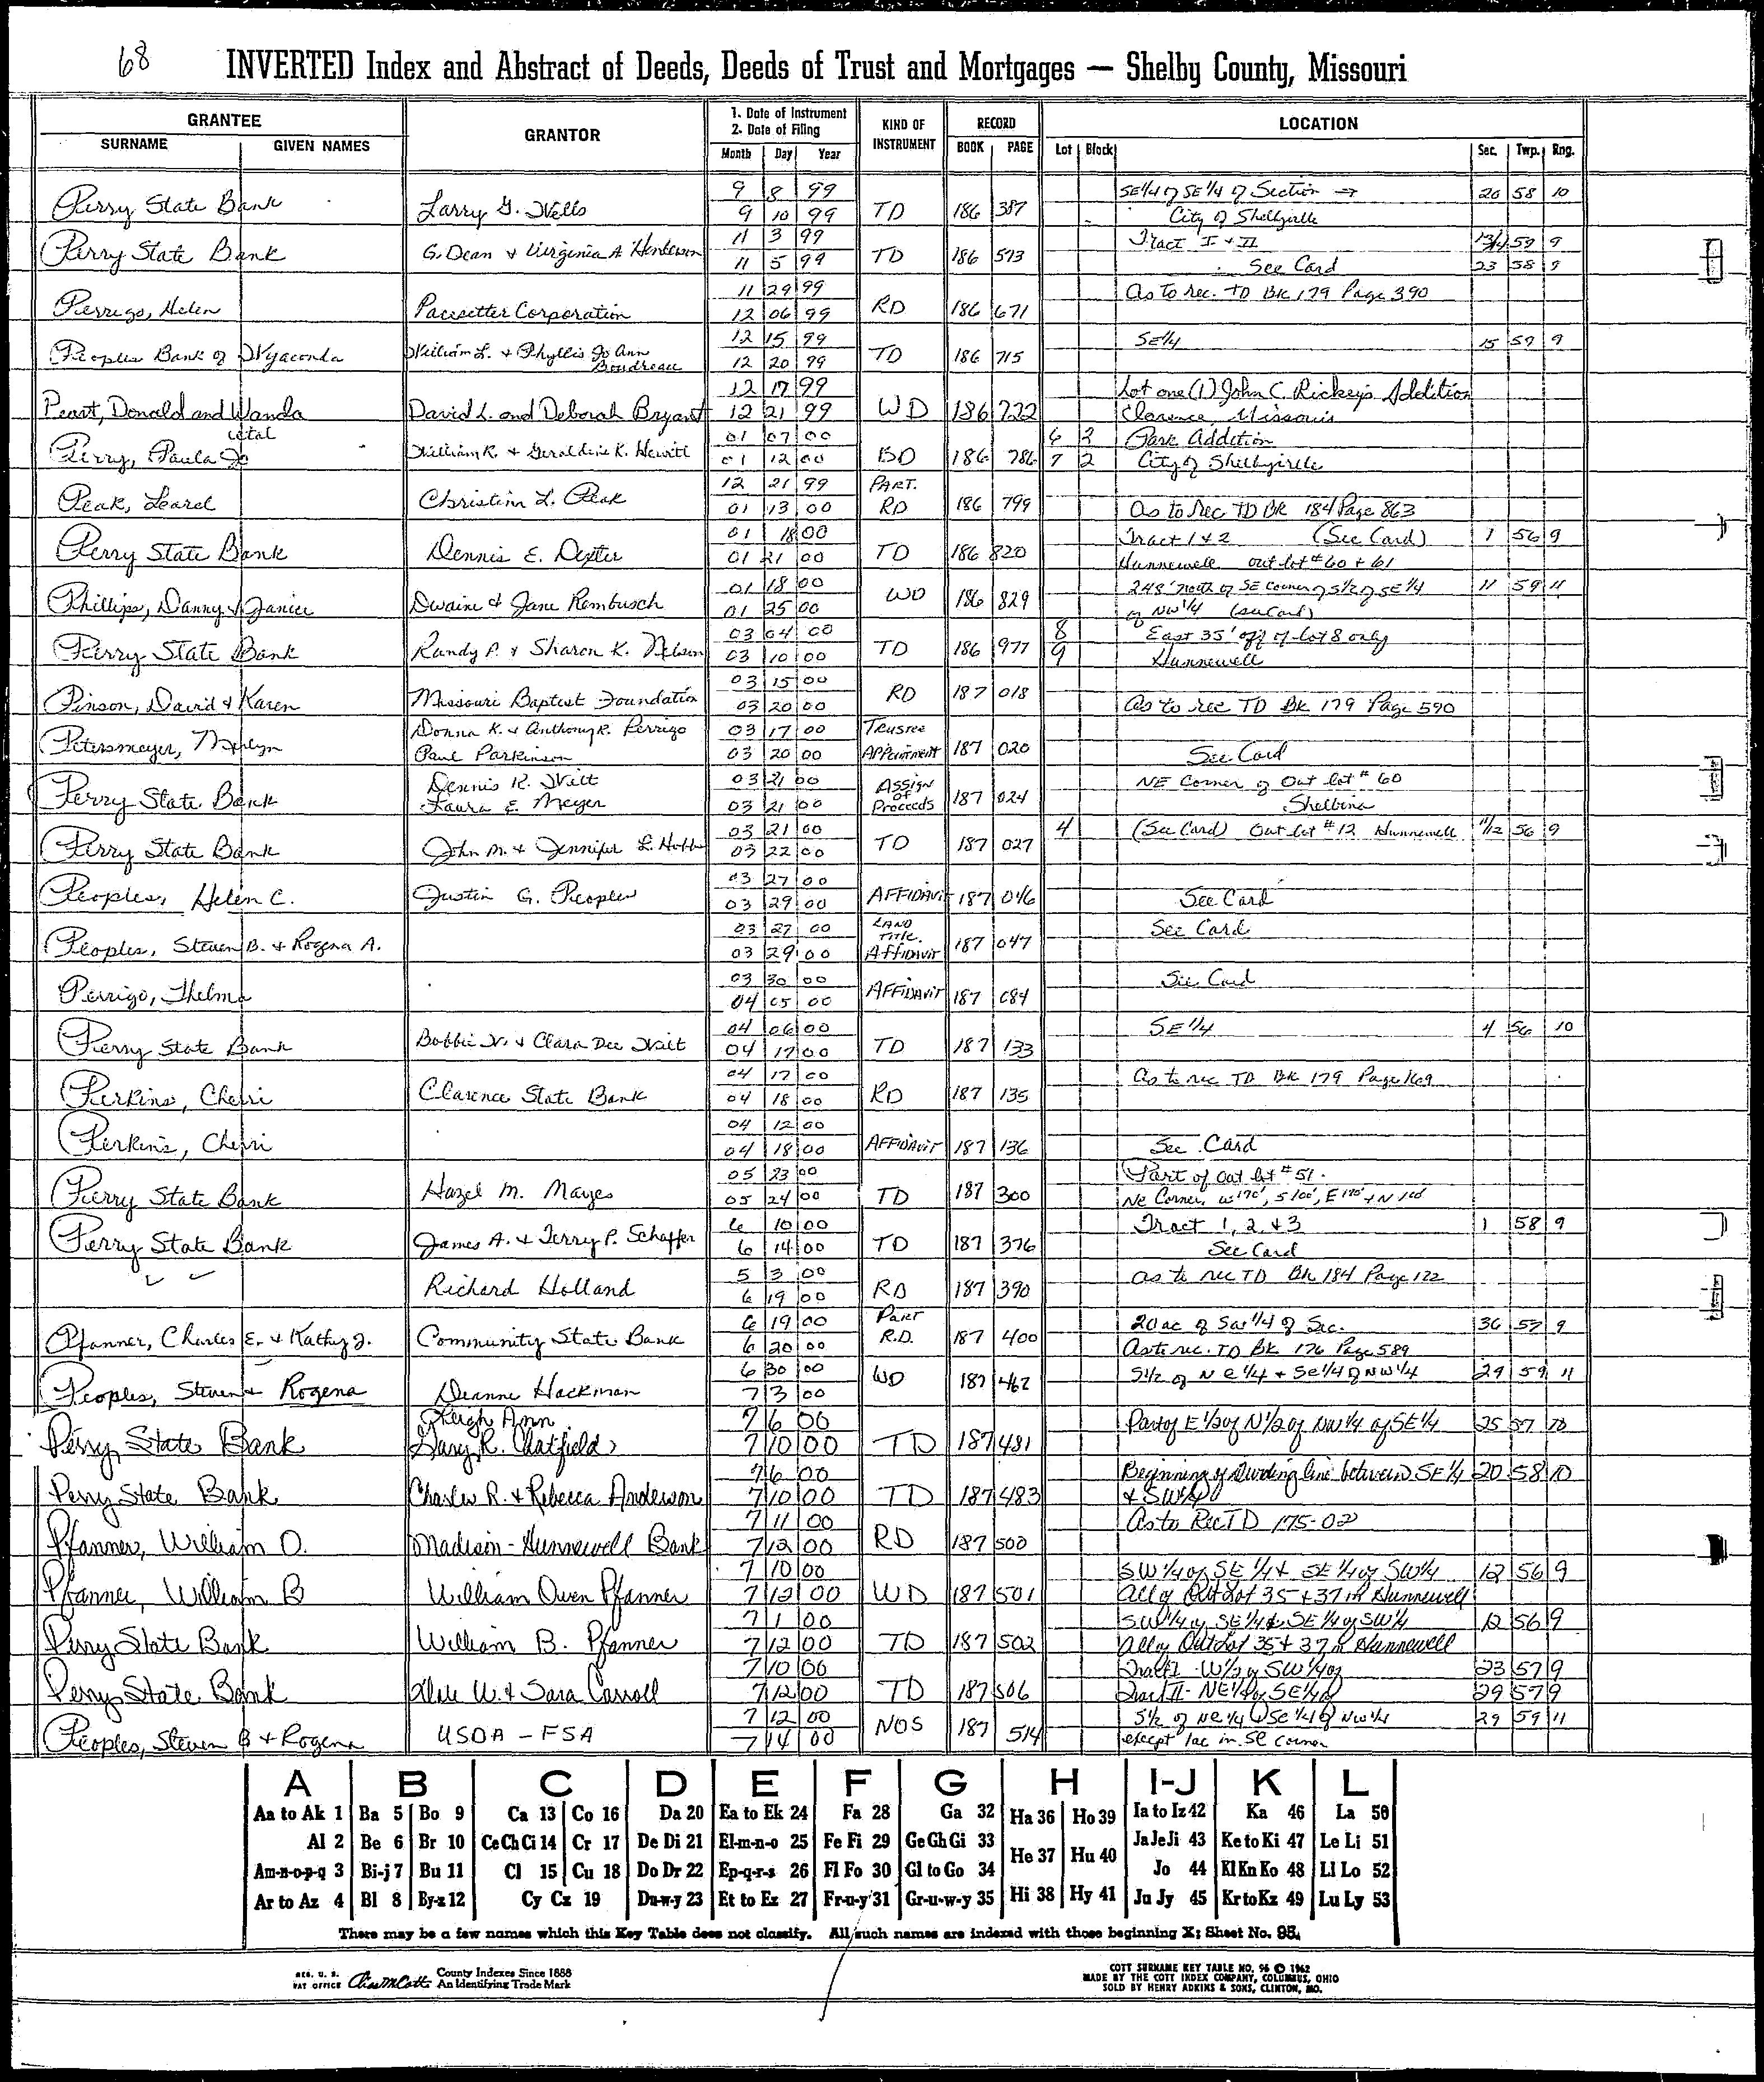 68
INVERTED Index and Abstract of Deeds, Deeds of Trust and Mortgages — Shelby County, Missouri
GRANTEE
SURNAME GIVEN NAMES
GRANTOR
1. Date of Instrument
2. Date of Filing
Month Day Year
KIND OF
INSTRUMENT
RECORD
BOOK PAGE
LOCATION
Lot Block Sec. Twp. Rng.
9 8 99 SE1/4 of SE 1/4 of Section → 20 58 10
Perry State Bank Larry G. Wells 9 10 99 TD 186 387 City of Shelbyville
11 3 99 Tract I + II 13/14 59 9
Perry State Bank G. Dean + Virginia A Henderson 11 5 99 TD 186 573 See Card 23 58 9
11 29 99 As to rec. TD BK 179 Page 390
Perrigo, Helen Pacesetter Corporation 12 06 99 RD 186 671
12 15 99 SE1/4 15 59 9
Peoples Bank of Wyaconda William L. + Phyllis Jo Ann Boudreau 12 20 99 TD 186 715
12 17 99 Lot one (1) John C. Rickey's Addition
Peart, Donald and Wanda David L. and Deborah Bryant 12 21 99 WD 186 722 Clarence, Missouri
etal 01 07 00 6 2 Park Addition
Perry, Paula Jo William R. + Geraldine K. Hewitt 01 12 00 BD 186 786 7 2 City of Shelbyville
12 21 99 PART.
Peak, Leard Christina L. Peak 01 13 00 RD 186 799 As to Rec TD BK 184 Page 863
01 18 00 Tract 1 & 2 (See Card) 1 56 9
Perry State Bank Dennis E. Dexter 01 21 00 TD 186 820 Hunnewell out lot # 60 + 61
01 18 00 248' North of SE Corner of S1/2 of SE 1/4 11 59 11
Phillips, Danny & Janice Dwaine & Jane Rembusch 01 25 00 WD 186 829 of NW 1/4 (see Card)
03 04 00 8 East 35' off of lot 8 only
Perry State Bank Randy P. + Sharon K. Nelson 03 10 00 TD 186 977 9 Hunnewell
03 15 00
Pinson, David & Karen Missouri Baptist Foundation 03 20 00 RD 187 018 As to rec TD BK 179 Page 590
Donna K. & Anthony R. Perrigo 03 17 00 Trustee
Petersmeyer, Paul Parkinson 03 20 00 Appointment 187 020 See Card
Dennis R. Witt 03 21 00 Assign of NE Corner of Out lot # 60
Perry State Bank Laura E. Meyer 03 21 00 Proceeds 187 024 Shelbina
03 21 00 4 (See Card) Out lot # 12 Hunnewell 11/12 56 9
Perry State Bank John M. + Jennifer L. 03 22 00 TD 187 027
03 27 00
Peoples, Helen C. Justin G. Peoples 03 29 00 AFFIDAVIT 187 046 See Card
03 27 00 LAND TITLE. See Card
Peoples, Steven B. + Rogena A. 03 29 00 Affidavit 187 047
03 30 00 See Card
Perrigo, Thelma 04 05 00 AFFIDAVIT 187 084
04 06 00 SE 1/4 4 56 10
Perry State Bank Bobbie W. & Clara Dee Wait 04 17 00 TD 187 133
04 17 00 As to rec TD BK 179 Page 169
Perkins, Cherri Clarence State Bank 04 18 00 RD 187 135
04 12 00
Perkins, Cherri 04 18 00 AFFIDAVIT 187 136 See Card
05 23 00 Part of Out lot # 51.
Perry State Bank Hazel M. Mayes 05 24 00 TD 187 300 NE Corner, W 170', S 100', E 170' + N 100'
6 10 00 Tract 1, 2, & 3 1 58 9
Perry State Bank James A. & Terry P. Schaffer 6 14 00 TD 187 376 See Card
5 3 00 As to rec TD Bk 184 Page 122
✓ ✓ Richard Holland 6 19 00 RD 187 390
6 19 00 Part 20 ac of SW 1/4 of Sec. 36 57 9
Pfanner, Charles E. & Kathy J. Community State Bank 6 20 00 R.D. 187 400 As to rec. TD Bk 176 Page 589
6 30 00 S1/2 of NE 1/4 + SE 1/4 of NW 1/4 29 59 11
Peoples, Steven & Rogena Deanne Hackman 7 3 00 WD 187 462
Leigh Ann 7 6 00 Part of E 1/2 of N 1/2 of NW 1/4 of SE 1/4 25 57 10
Perry State Bank Gary R. Chatfield 7 10 00 TD 187 481
7 6 00 Beginning of Dividing line between SE 1/4 20 58 10
Perry State Bank Charles R. & Rebecca Anderson 7 10 00 TD 187 483 & SW 1/4
7 11 00 As to Rec TD 175-02
Pfanner, William O. Madison-Hunnewell Bank 7 12 00 RD 187 500
7 10 00 SW 1/4 of SE 1/4 & SE 1/4 of SW 1/4 12 56 9
Pfanner, William B William Owen Pfanner 7 12 00 WD 187 501 all of Out Lot 35 + 37 in Hunnewell
7 1 00 SW 1/4 of SE 1/4 & SE 1/4 of SW 1/4 12 56 9
Perry State Bank William B. Pfanner 7 12 00 TD 187 502 all of Out Lot 35 + 37 in Hunnewell
7 10 00 Tract I - W 1/2 of SW 1/4 of 23 57 9
Perry State Bank W. & Sara Carroll 7 12 00 TD 187 506 Tract II - NE 1/4 of SE 1/4 of 29 57 9
7 12 00 S 1/2 of NE 1/4 SE 1/4 of NW 1/4 29 59 11
Peoples, Steven B & Rogena USDA - FSA 7 14 00 NOS 187 514 except 1ac in SE corner
A B C D E F G H I-J K L
Aa to Ak 1 Ba 5 Bo 9 Ca 13 Co 16 Da 20 Ea to Ek 24 Fa 28 Ga 32 Ha 36 Ho 39 Ia to Iz 42 Ka 46 La 50
Al 2 Be 6 Br 10 Ce Ch Ci 14 Cr 17 De Di 21 El-m-n-o 25 Fe Fi 29 Ge Gh Gi 33 He 37 Hu 40 Ja Je Ji 43 Ke to Ki 47 Le Li 51
Am-n-o-p-q 3 Bi-j 7 Bu 11 Cl 15 Cu 18 Do Dr 22 Ep-q-r-s 26 Fl Fo 30 Gl to Go 34 Jo 44 Kl Kn Ko 48 Ll Lo 52
Ar to Az 4 Bl 8 By-z 12 Cy Cz 19 Du-w-y 23 Et to Ez 27 Fr-u-y 31 Gr-u-w-y 35 Hi 38 Hy 41 Ju Jy 45 Kr to Kz 49 Lu Ly 53
There may be a few names which this Key Table does not classify. All such names are indexed with those beginning X; Sheet No. 95.
REG. U. S. PAT OFFICE County Indexes Since 1888
An Identifying Trade Mark
COTT SURNAME KEY TABLE NO. 96 © 1962
MADE BY THE COTT INDEX COMPANY, COLUMBUS, OHIO
SOLD BY HENRY ADKINS & SONS, CLINTON, MO.